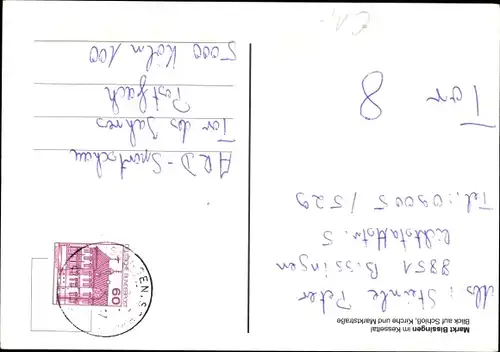 Markt Bissingen im Kesseltal
Blick auf Schloß, Kirche und Marktstraße
Abs: Steinle Peter
8851 Bissingen
Lichtstattstr. 5
Tel.: 09005 / 529
Tor
8
60
ARD-Sportschau
Tor des Jahres
Postfach
5000 Köln 100